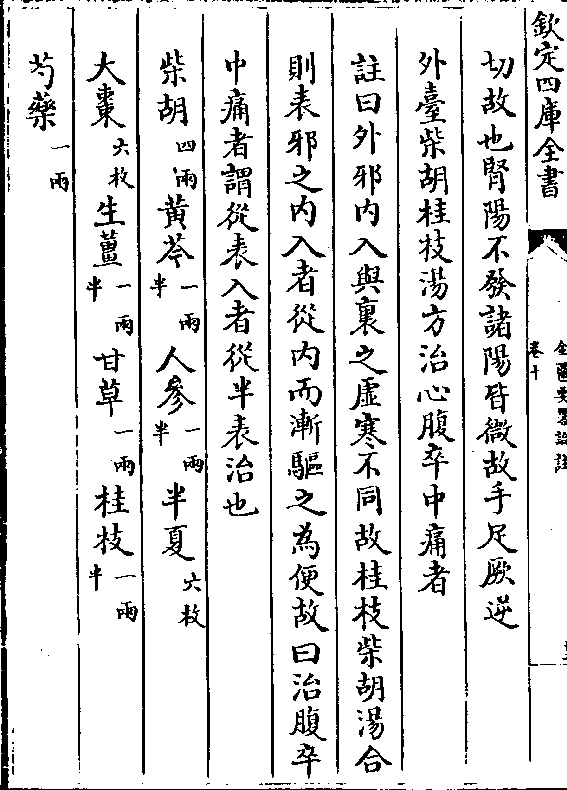 欽定四庫全書
金匱要畧論註
卷十
切故也腎陽不發諸陽皆微故手足厥逆
外臺柴胡桂枝湯方治心腹卒中痛者
註曰外邪内入與裏之虛寒不同故桂枝柴胡湯合
則表邪之内入者從内而漸驅之為便故曰治腹卒
中痛者謂從表入者從半表治也
柴胡四兩黃芩一兩半人參一兩半半夏六枚
大棗六枚生薑一兩半甘草一兩桂枝一兩半
芍藥一兩